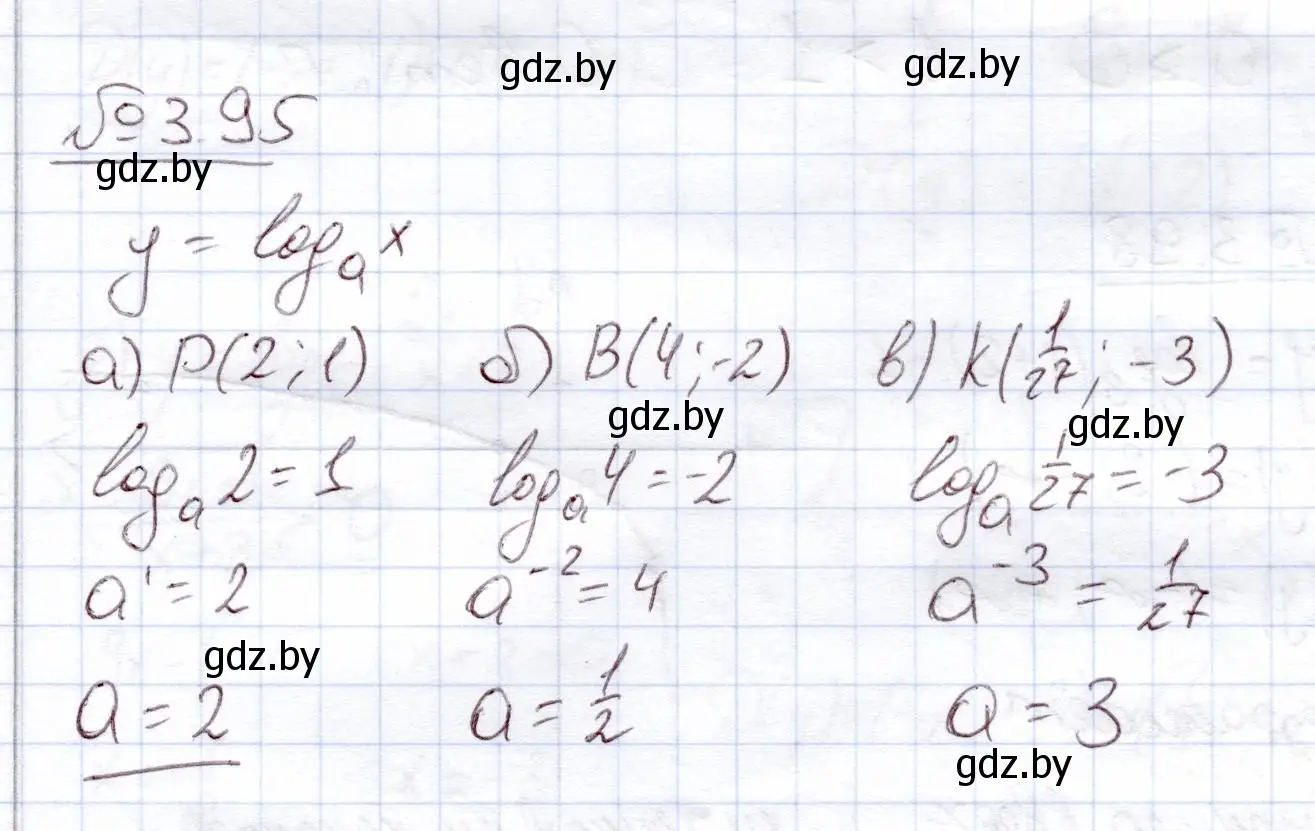 gdz.by gdz.by
№ 3.95
gdz.by
y = logₐ x
а) P(2; 1) б) B(4; -2) в) K(1/27; -3)
gdz.by gdz.by
logₐ 2 = 1 logₐ 4 = -2 logₐ 1/27 = -3
a¹ = 2 a⁻² = 4 a⁻³ = 1/27
gdz.by
a = 2 a = 1/2 a = 3
gdz.by